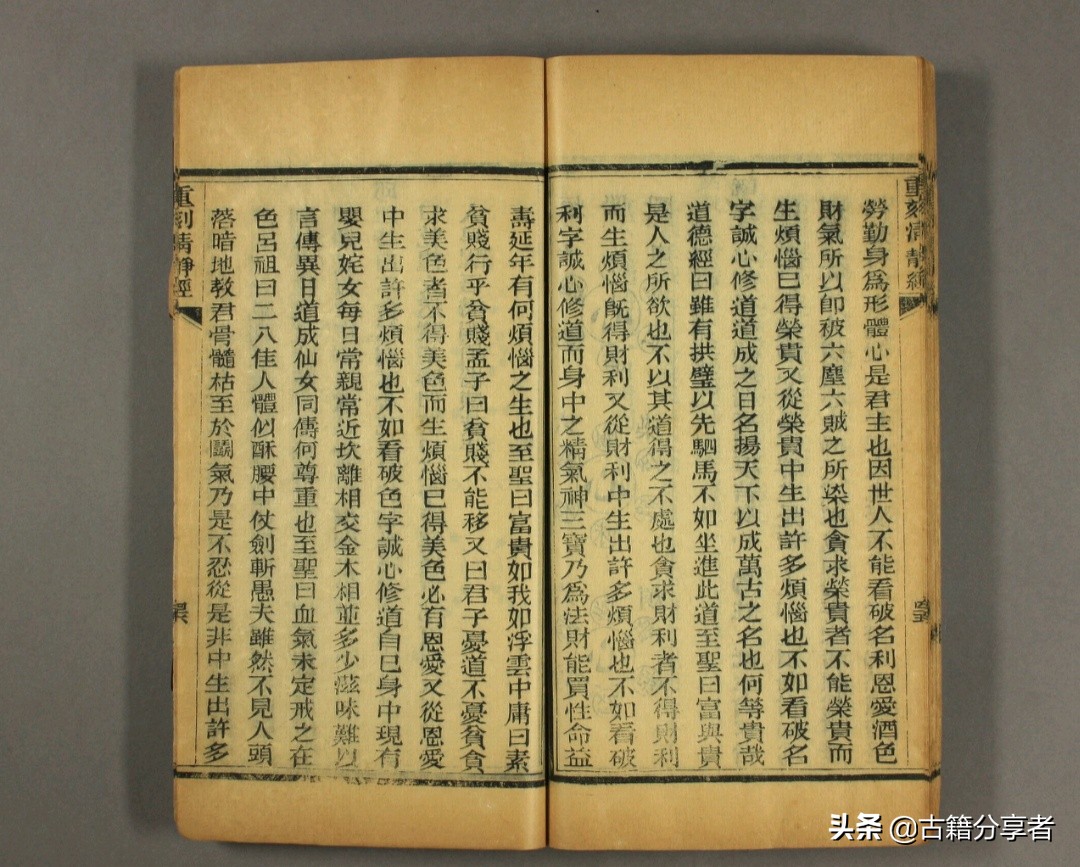 重刻清靜經
勞勤身爲形體心是君主也因世人不能看破名利恩愛酒色
財氣所以卽被六塵六賊之所染也貪求榮貴者不能榮貴而
生煩惱已得榮貴又從榮貴中生出許多煩惱也不如看破名
字誠心修道道成之日名揚天下以成萬古之名也何等貴哉
道德經曰雖有拱璧以先駟馬不如坐進此道至聖曰富與貴
是人之所欲也不以其道得之不處也貪求財利者不得財利
而生煩惱旣得財利又從財利中生出許多煩惱也不如看破
利字誠心修道而身中之精氣神三寶乃爲法財能買性命益
壽延年有何煩惱之生也至聖曰富貴如我如浮雲中庸曰素
貧賤行乎貧賤孟子曰貧賤不能移又曰君子憂道不憂貧貪
求美色者不得美色而生煩惱已得美色必有恩愛又從恩愛
中生出許多煩惱也不如看破色字誠心修道自已身中現有
嬰兒姹女每日常親常近坎離相交金木相並多少滋味難以
言傳異日道成仙女同傳何尊重也至聖曰血氣未定戒之在
色呂祖曰二八佳人體似酥腰中仗劍斬愚夫雖然不見人頭
落暗地教君骨髓枯至於鬬氣乃是不忍從是非中生出許多
重刻清靜經
头条 @古籍分享者